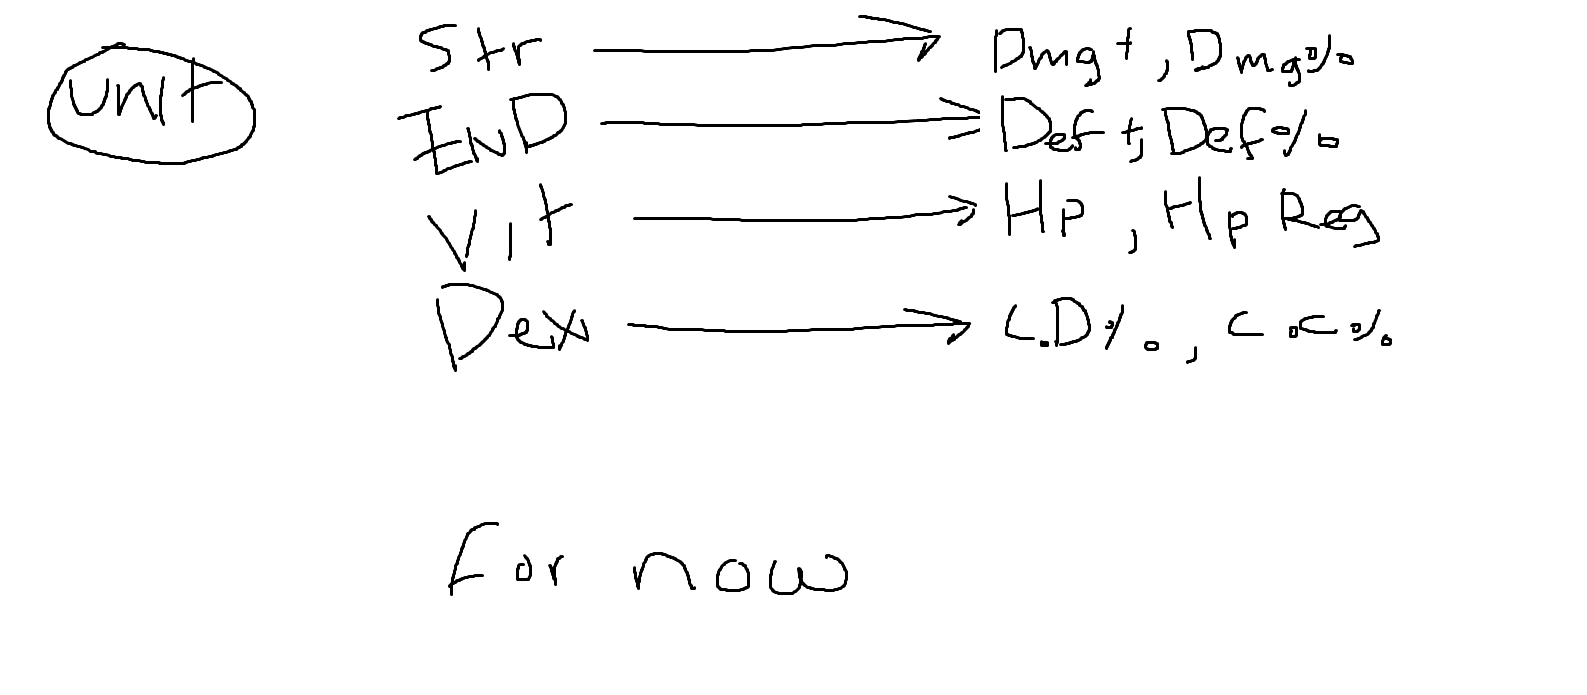 unit
Str → Dmg+, Dmg%
END → Def+, Def%
Vit → Hp, Hp Reg
Dex → C.D%, C.C%
For now